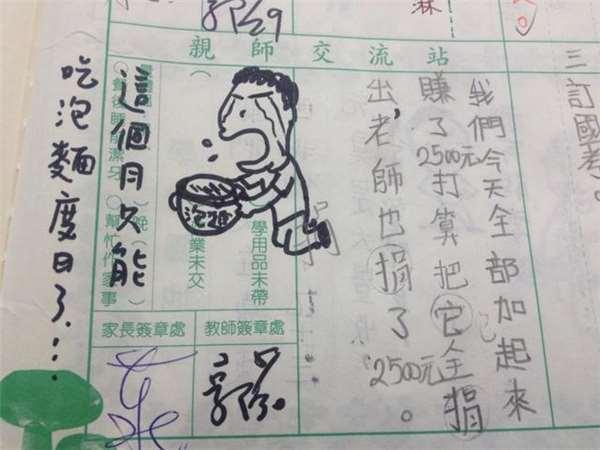 親師交流站
三訂國考。
我們今天全部加起來
賺了2500元打算把它全捐
出,老師也捐了2500元。
捐
泡麵
學用品未帶
業未交
餐後睡前潔牙
幫忙作家事
這個月只能
吃泡麵度日了...
教師簽章處
家長簽章處